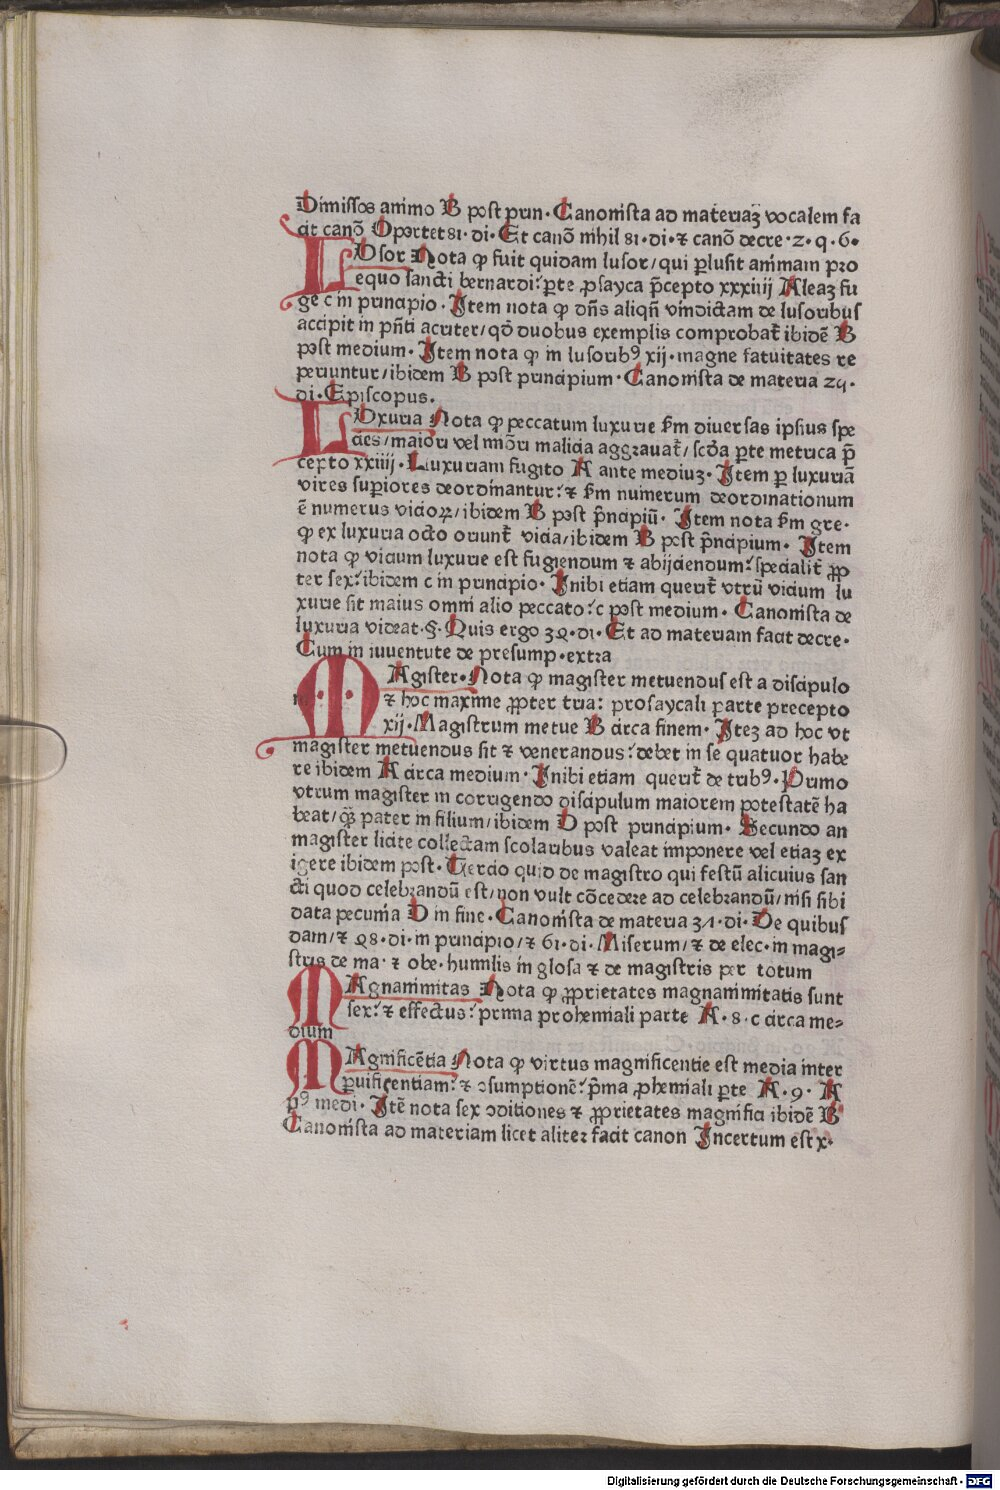 Dimissos animo B post prin· Canonista ad materiaʒ vocalem fa
cit canō Oportet 81· di· Et canō nihil 81· di· ⁊ canō decre· 2· q· 6·
LUsor Nota ꝙ fuit quidam lusor/qui ꝑlusit animam pro
equo sancti bernardi: ꝑte ꝓsayca p̄cepto xxxiiij Aleaʒ fu
ge c in principio· Item nota ꝙ dn̄s aliqn̄ vindictam de lusoribus
accipit in pn̄ti acriter/qd̄ duobus exemplis comprobat᷑ ibidē B
post medium· Item nota ꝙ in lusorib⁹ xij· magne fatuitates re
periuntur/ibidem B post principium· Canonista de materia 24·
di· Episcopus.
LUxuria Nota ꝙ peccatum luxurie ẜm diuersas ipsius spe
cies/maiori vel mīori malicia aggrauat᷑/scd̄a ꝑte metrica p̄
cepto xxiiij· Luxuriam fugito A ante mediuʒ· Item ꝑ luxuriā
vires suꝑiores deordinantur: ⁊ ẜm numerum deordinationum
ē numerus vicioꝝ/ibidem B post p̄ncipiū· Item nota ẜm gre·
ꝙ ex luxuria octo oriunt᷑ vicia/ibidem B post p̄ncipium· Item
nota ꝙ vicium luxurie est fugiendum ⁊ abijciendum: specialit᷑ ꝓp
ter sex: ibidem c in principio· Inibi etiam querit᷑ vtrū vicium lu
xurie sit maius omni alio peccato: c post medium· Canonista de
luxuria videat·§· Quis ergo 32· di· Et ad materiam facit decre·
Cum in iuuentute de presump· extra
MAgister· Nota ꝙ magister metuendus est a discipulo
⁊ hoc maxime ꝓpter tria: prosaycali parte precepto
xij· Magistrum metue B circa finem· Iteʒ ad hoc vt
magister metuendus sit ⁊ venerandus: debet in se quatuor habe
re ibidem A circa medium· Inibi etiam querit᷑ de trib⁹· Primo
vtrum magister in corrigendo discipulum maiorem potestatē ha
beat/ꝙ̄ pater in filium/ibidem D post principium· Secundo an
magister licite collectam scolaribus valeat imponere vel etiaʒ ex
igere ibidem post· Tercio quid de magistro qui festū alicuius san
cti quod celebrandū est/non vult cōcedere ad celebrandū/nisi sibi
data pecunia D in fine· Canonista de materia 37· di· De quibus
dam/⁊ 28· di· in principio/⁊ 61· di· Miserum/⁊ de elec· in magi⸗
stris de ma· ⁊ obe· humilis in glosa ⁊ de magistris per totum
MAgnanimitas Nota ꝙ ꝓprietates magnanimitatis sunt
sex: ⁊ effectus: prima prohemiali parte A· 8· c circa me⸗
dium
MAgnificētia Nota ꝙ virtus magnificentie est media inter
ꝑuificentiam: ⁊ ↄsumptionē: p̄ma ꝓhemiali ꝑte A· 9· A
p⁹ medi· Itē nota sex ↄditiones ⁊ ꝓprietates magnifici ibidē B
Canonista ad materiam licet aliter facit canon Incertum est x·
Digitalisierung gefördert durch die Deutsche Forschungsgemeinschaft · DFG